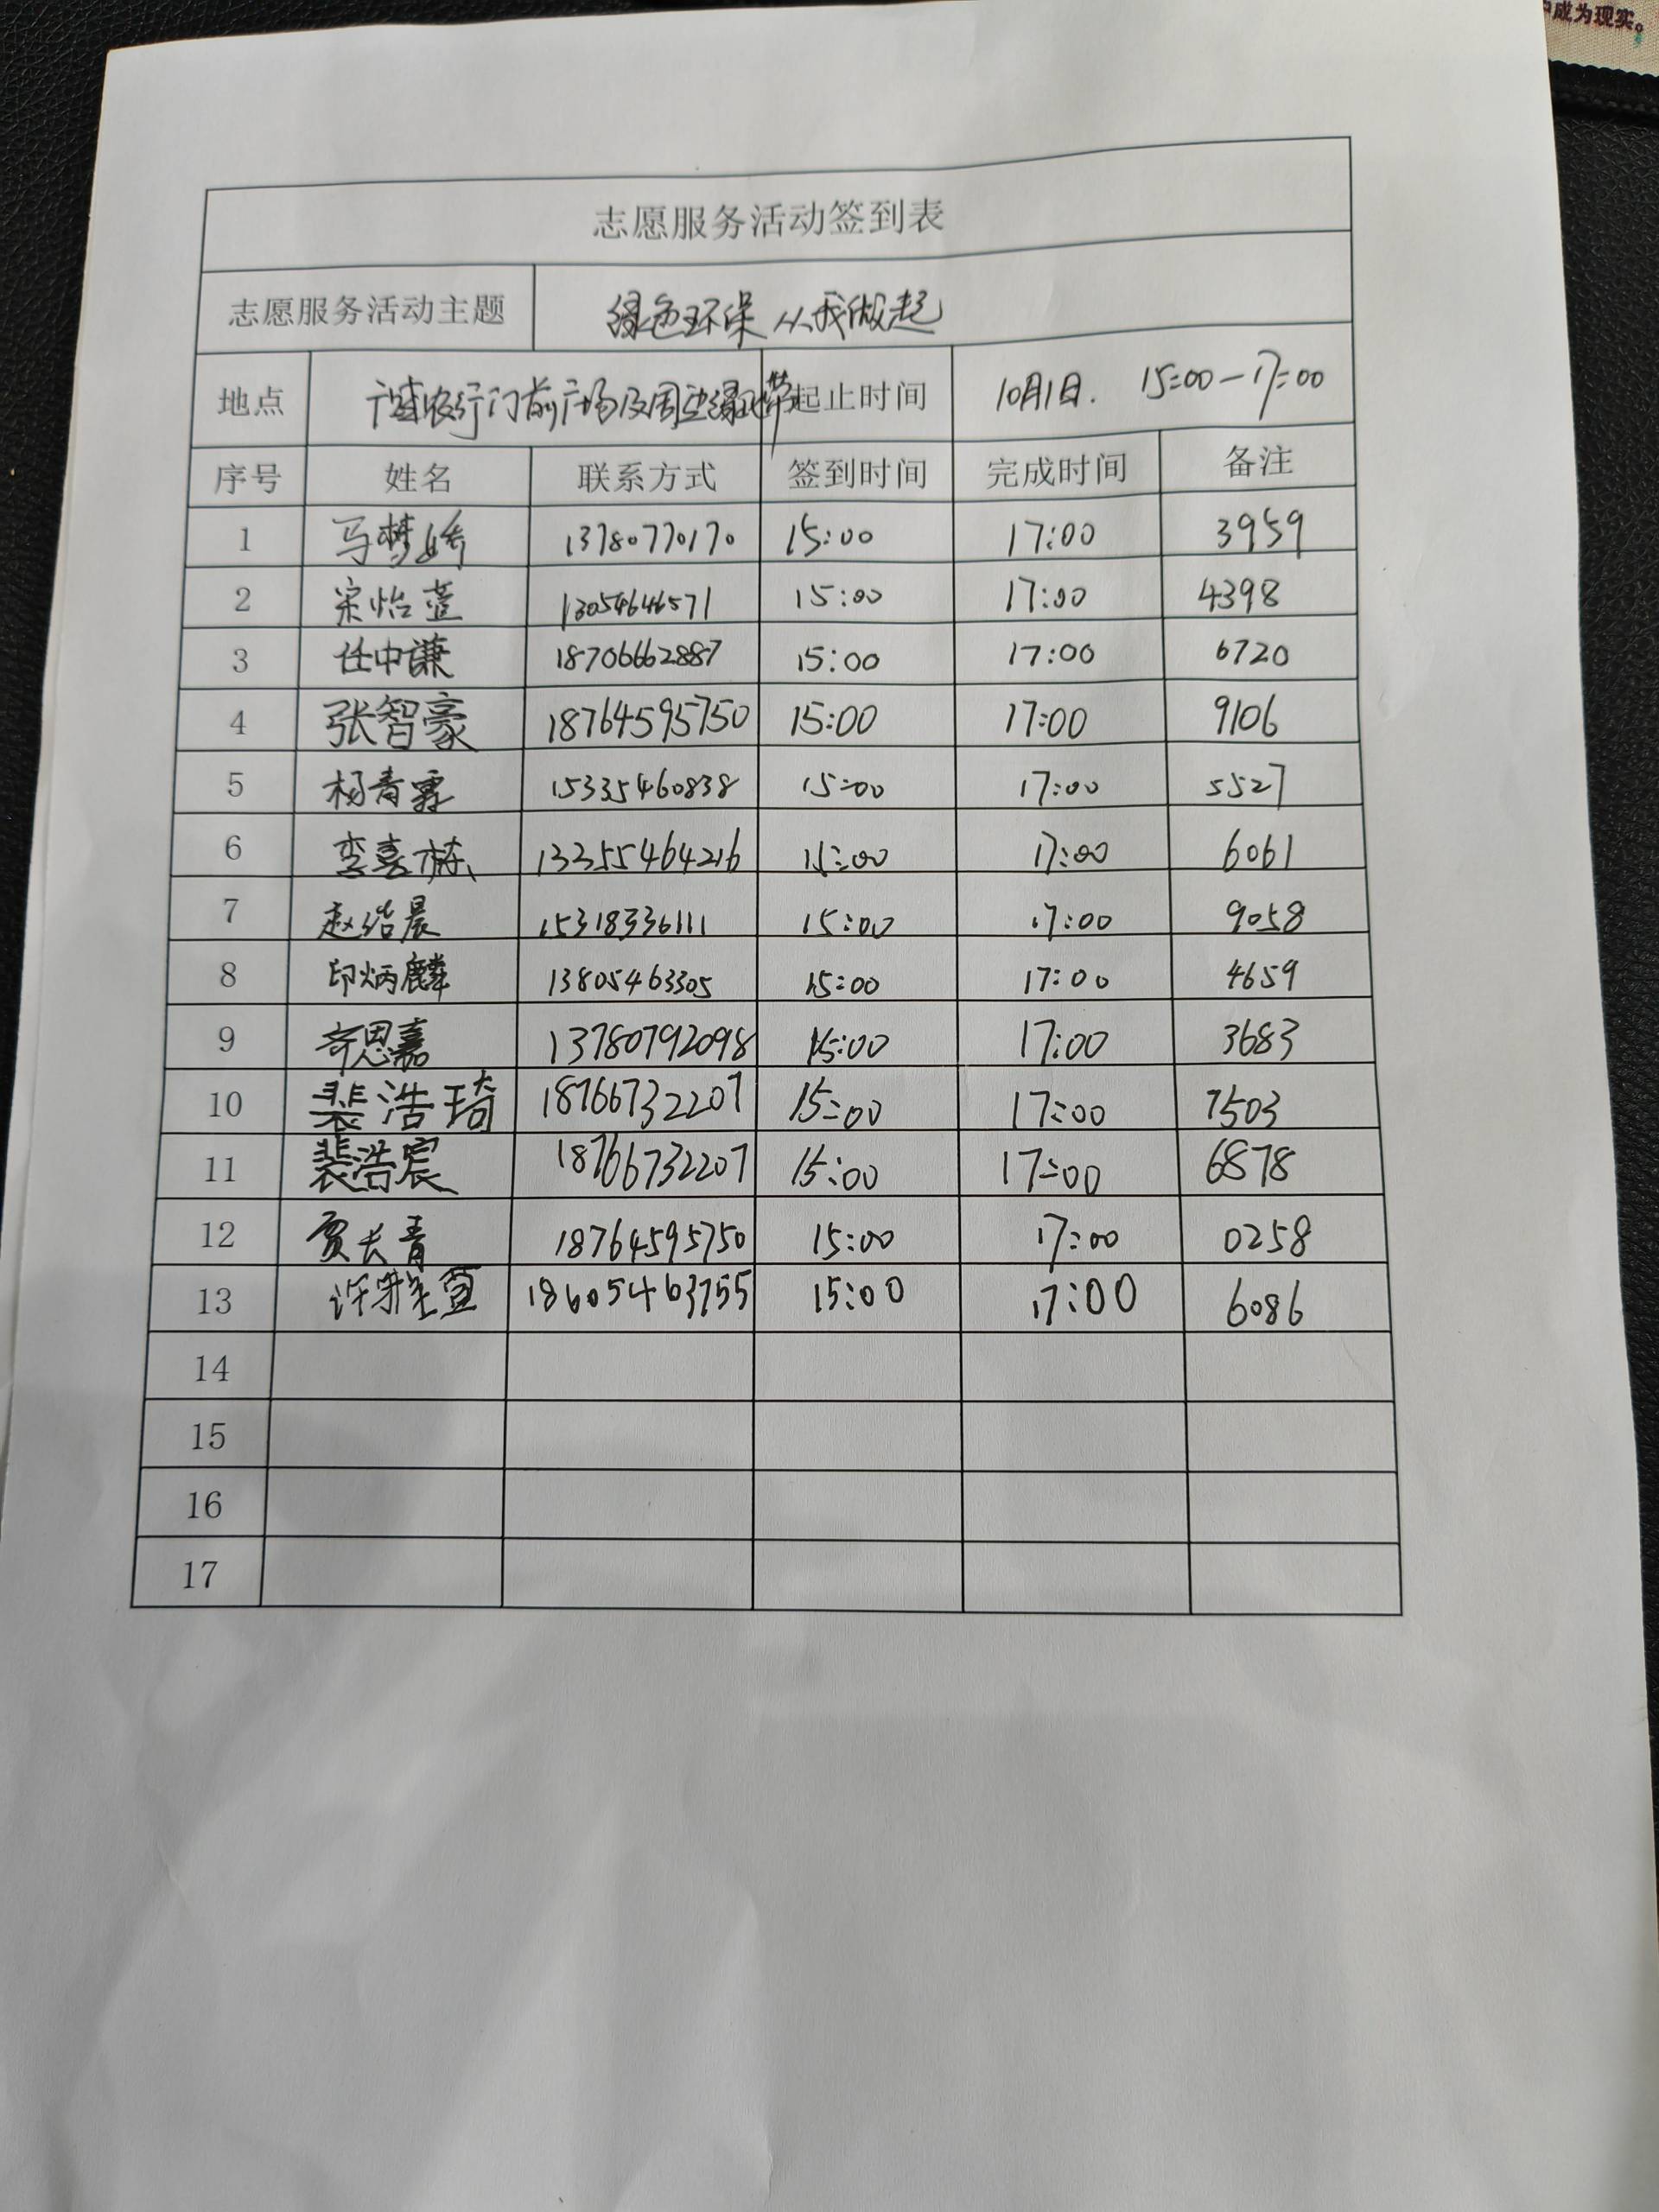 中成为现实。
志愿服务活动签到表
志愿服务活动主题 绿色环保 从我做起
地点 广饶农行门前广场及周边绿化带 起止时间 10月1日. 15:00-17:00
序号 姓名 联系方式 签到时间 完成时间 备注
1 马梦娇 13780770170 15:00 17:00 3959
2 宋怡萱 13054646571 15:00 17:00 4398
3 任中谦 18706662887 15:00 17:00 6720
4 张智豪 18764595750 15:00 17:00 9106
5 杨青霖 15335460838 15:00 17:00 5527
6 李嘉栋 13355464216 15:00 17:00 6061
7 赵浩晨 15318336111 15:00 17:00 9058
8 印炳麟 13805463305 15:00 17:00 4659
9 齐思嘉 13780792098 15:00 17:00 3683
10 裴浩琦 18766732207 15:00 17:00 7503
11 裴浩宸 18766732207 15:00 17:00 6878
12 贾长青 18764595750 15:00 17:00 0258
13 许雅萱 18605463755 15:00 17:00 6086
14
15
16
17